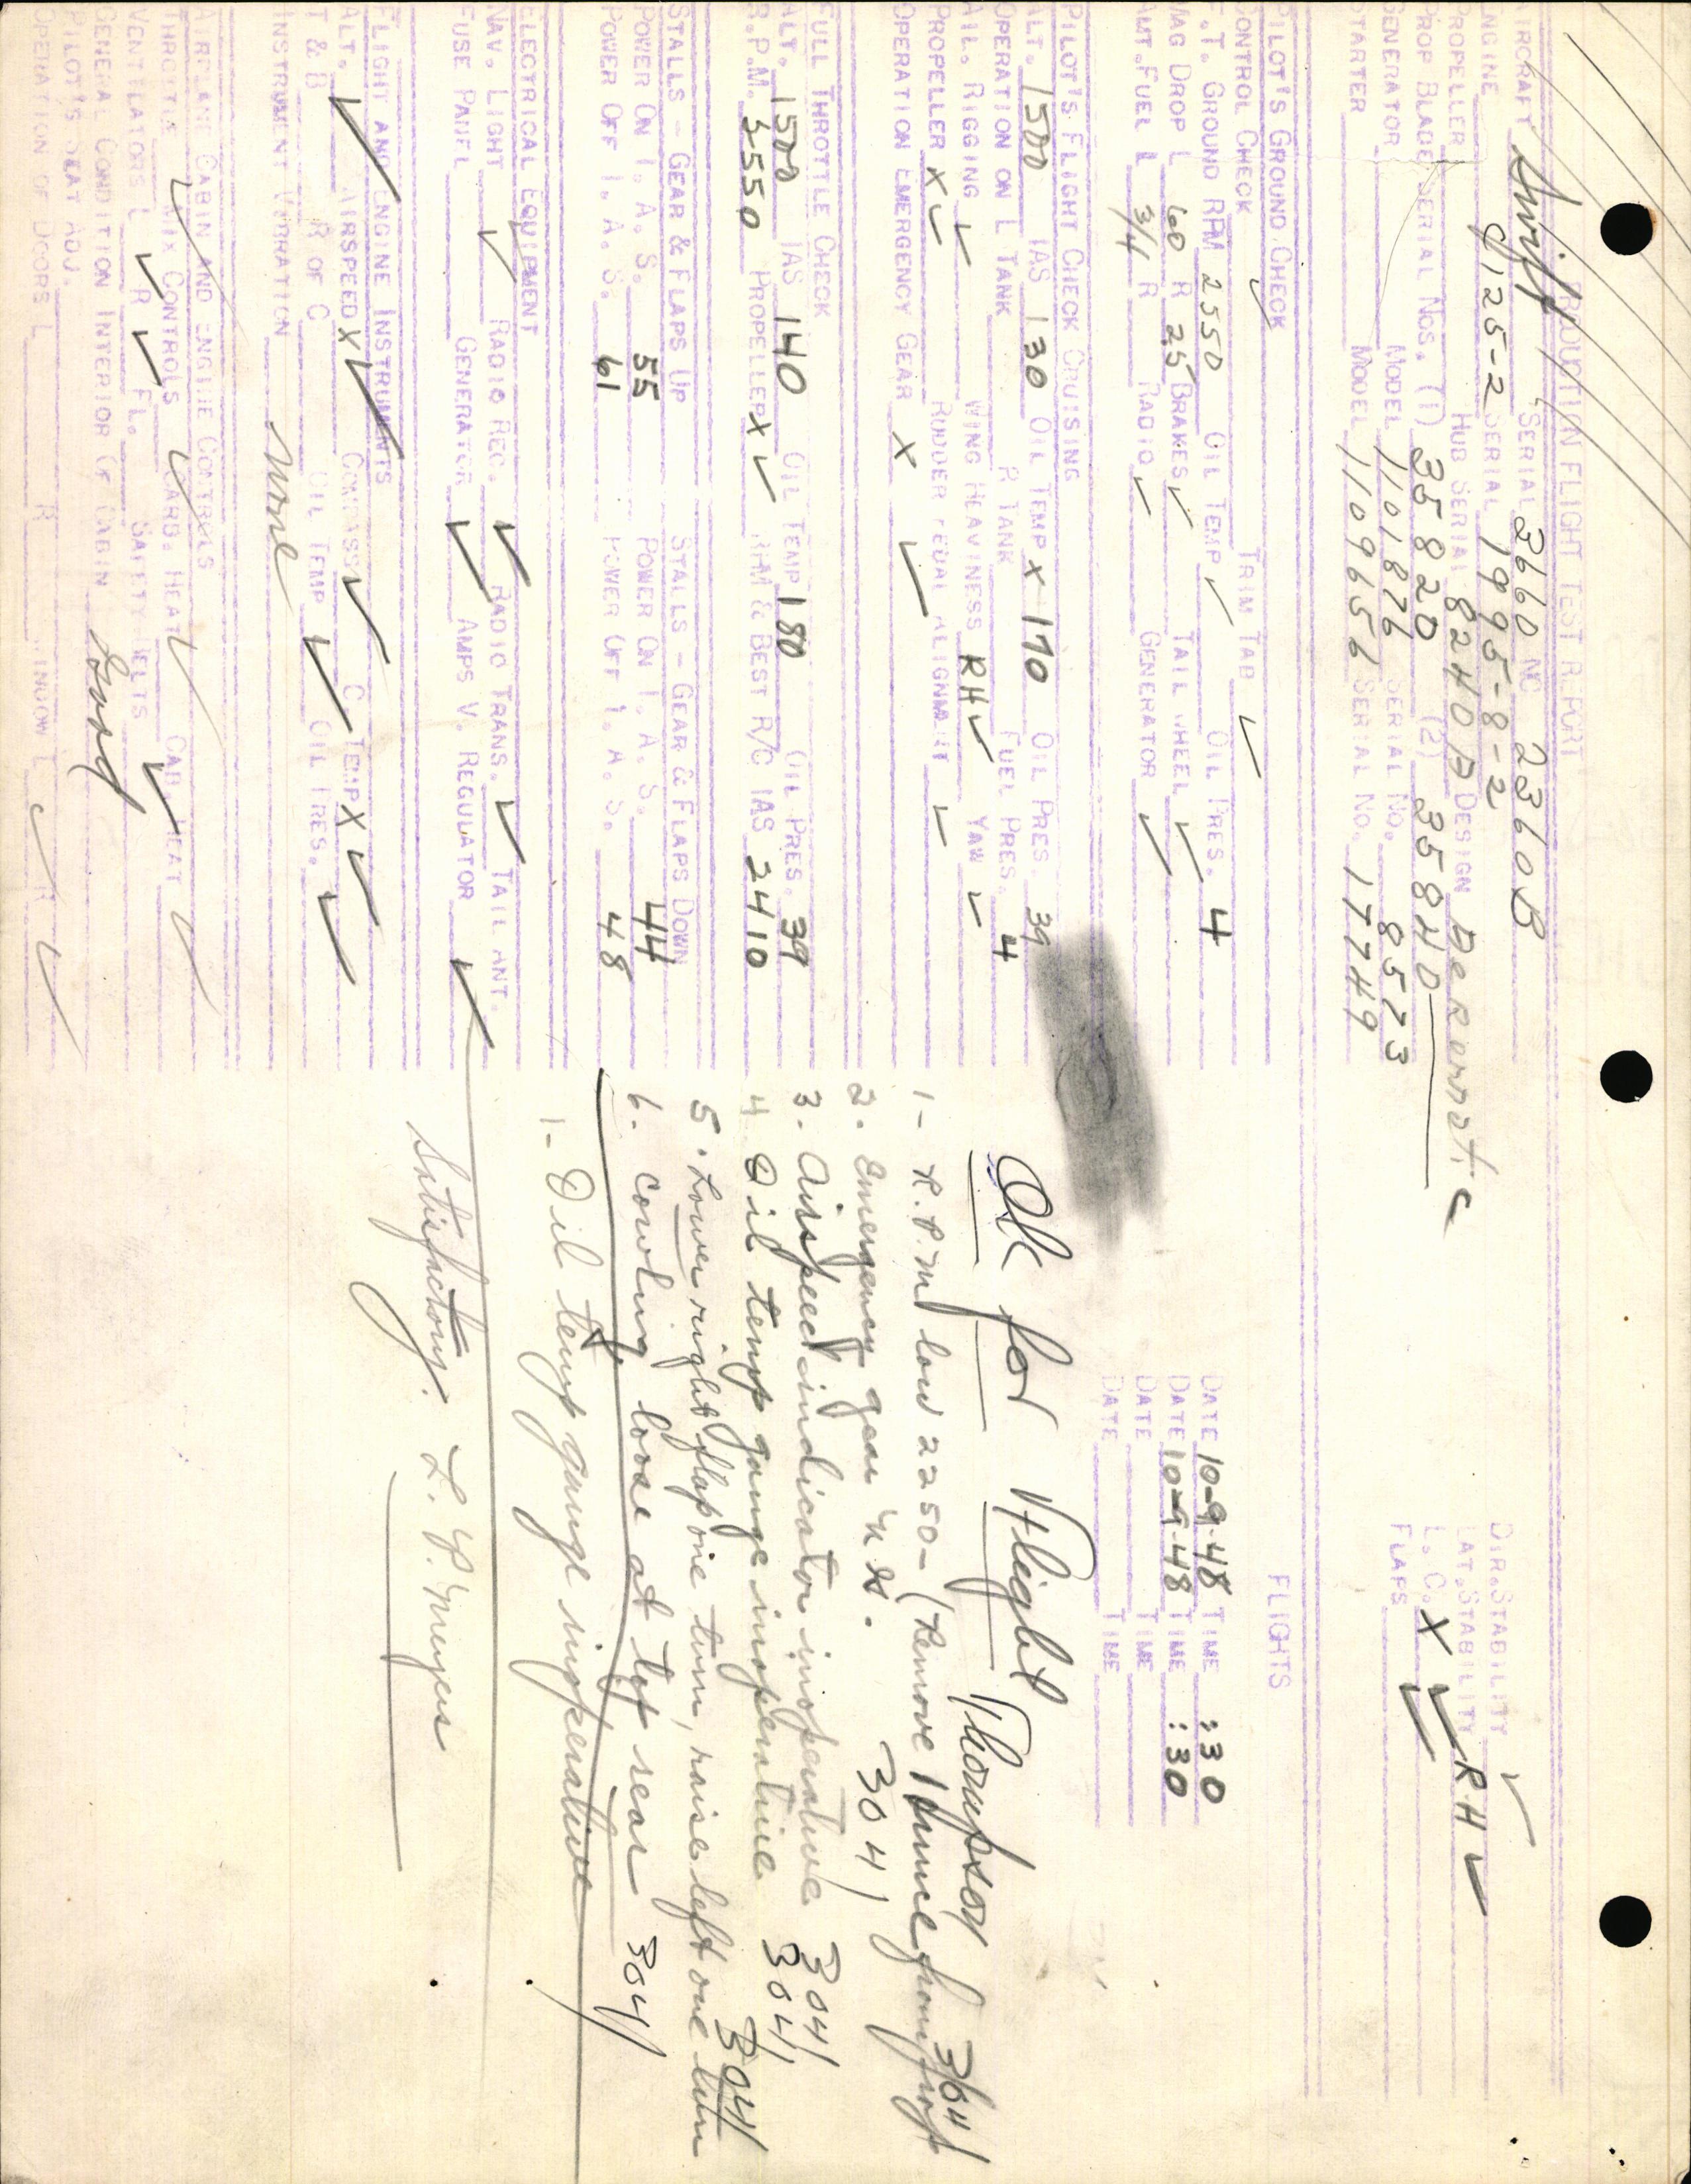 PRODUCTION FLIGHT TEST REPORT
AIRCRAFT Swift SERIAL 3660 NC 2360B
ENGINE C125-2 SERIAL 19995-8-2
PROPELLER HUB SERIAL 8240B DESIGN Aeromatic
PROP BLADE SERIAL NOS. (1) 35820 (2) 35840
GENERATOR MODEL 1101876 SERIAL NO. 8573
STARTER MODEL 1109656 SERIAL NO. 17749
DIR. STABILITY ✓
LAT. STABILITY RH ✓
L. C. X ✓
FLAPS ✓
PILOT'S GROUND CHECK
CONTROL CHECK ✓ TRIM TAB ✓
F.T. GROUND RPM 2550 OIL TEMP ✓ OIL PRES. 4
MAG DROP L 60 R 25 BRAKES ✓ TAIL WHEEL ✓
AMT. FUEL L 3/4 R RADIO ✓ GENERATOR ✓
FLIGHTS
DATE 10-9-48 TIME :30
DATE 10-9-48 TIME :30
DATE TIME
DATE TIME
PILOT'S FLIGHT CHECK CRUISING
ALT. 1500 IAS 130 OIL TEMP X 170 OIL PRES. 39
OPERATION ON L TANK R TANK FUEL PRES. 4
AIL. RIGGING ✓ WING HEAVINESS RH ✓ YAW ✓
PROPELLER X ✓ RUDDER PEDAL ALIGNMENT ✓
OPERATION EMERGENCY GEAR X ✓
FULL THROTTLE CHECK
ALT. 1500 IAS 140 OIL TEMP 180 OIL PRES. 39
R.P.M. 3550 PROPELLER X ✓ RPM & BEST R/C IAS 2410
STALLS - GEAR & FLAPS UP STALLS - GEAR & FLAPS DOWN
POWER ON I. A. S. 55 POWER ON I. A. S. 44
POWER OFF I. A. S. 61 POWER OFF I. A. S. 48
ELECTRICAL EQUIPMENT
NAV. LIGHT ✓ RADIO REC. ✓ RADIO TRANS. ✓ TAIL ANT.
FUSE PANEL GENERATOR ✓ AMPS V. REGULATOR ✓
FLIGHT AND ENGINE INSTRUMENTS
ALT. ✓ AIRSPEED X ✓ COMPASS ✓ C TEMP X ✓
T & B R OF C OIL TEMP ✓ OIL PRES. ✓
INSTRUMENT VIBRATION none
AIRPLANE CABIN AND ENGINE CONTROLS
THROTTLE ✓ MIX CONTROLS ✓ CARB. HEAT ✓ CAB. HEAT ✓
VENTILATORS L ✓ R ✓ FL. SAFETY BELTS ✓
GENERAL CONDITION INTERIOR OF CABIN Good
PILOT'S SEAT ADJ.
OPERATION OF DOORS L R WINDOW L ✓ R ✓
OK for Flight Thompson
1- R.P.M low 2250- (Remove 1 from prop 3041
2. Emergency gear 3041
3. Airspeed indicator inoperative 3041
4. Oil temp gauge inoperative 3041
5. Lower right flap one turn, raise left one turn 3041
6. Cowling loose at top rear 3041
1- Oil temp gauge inoperative
Satisfactory. L. P. Meyers